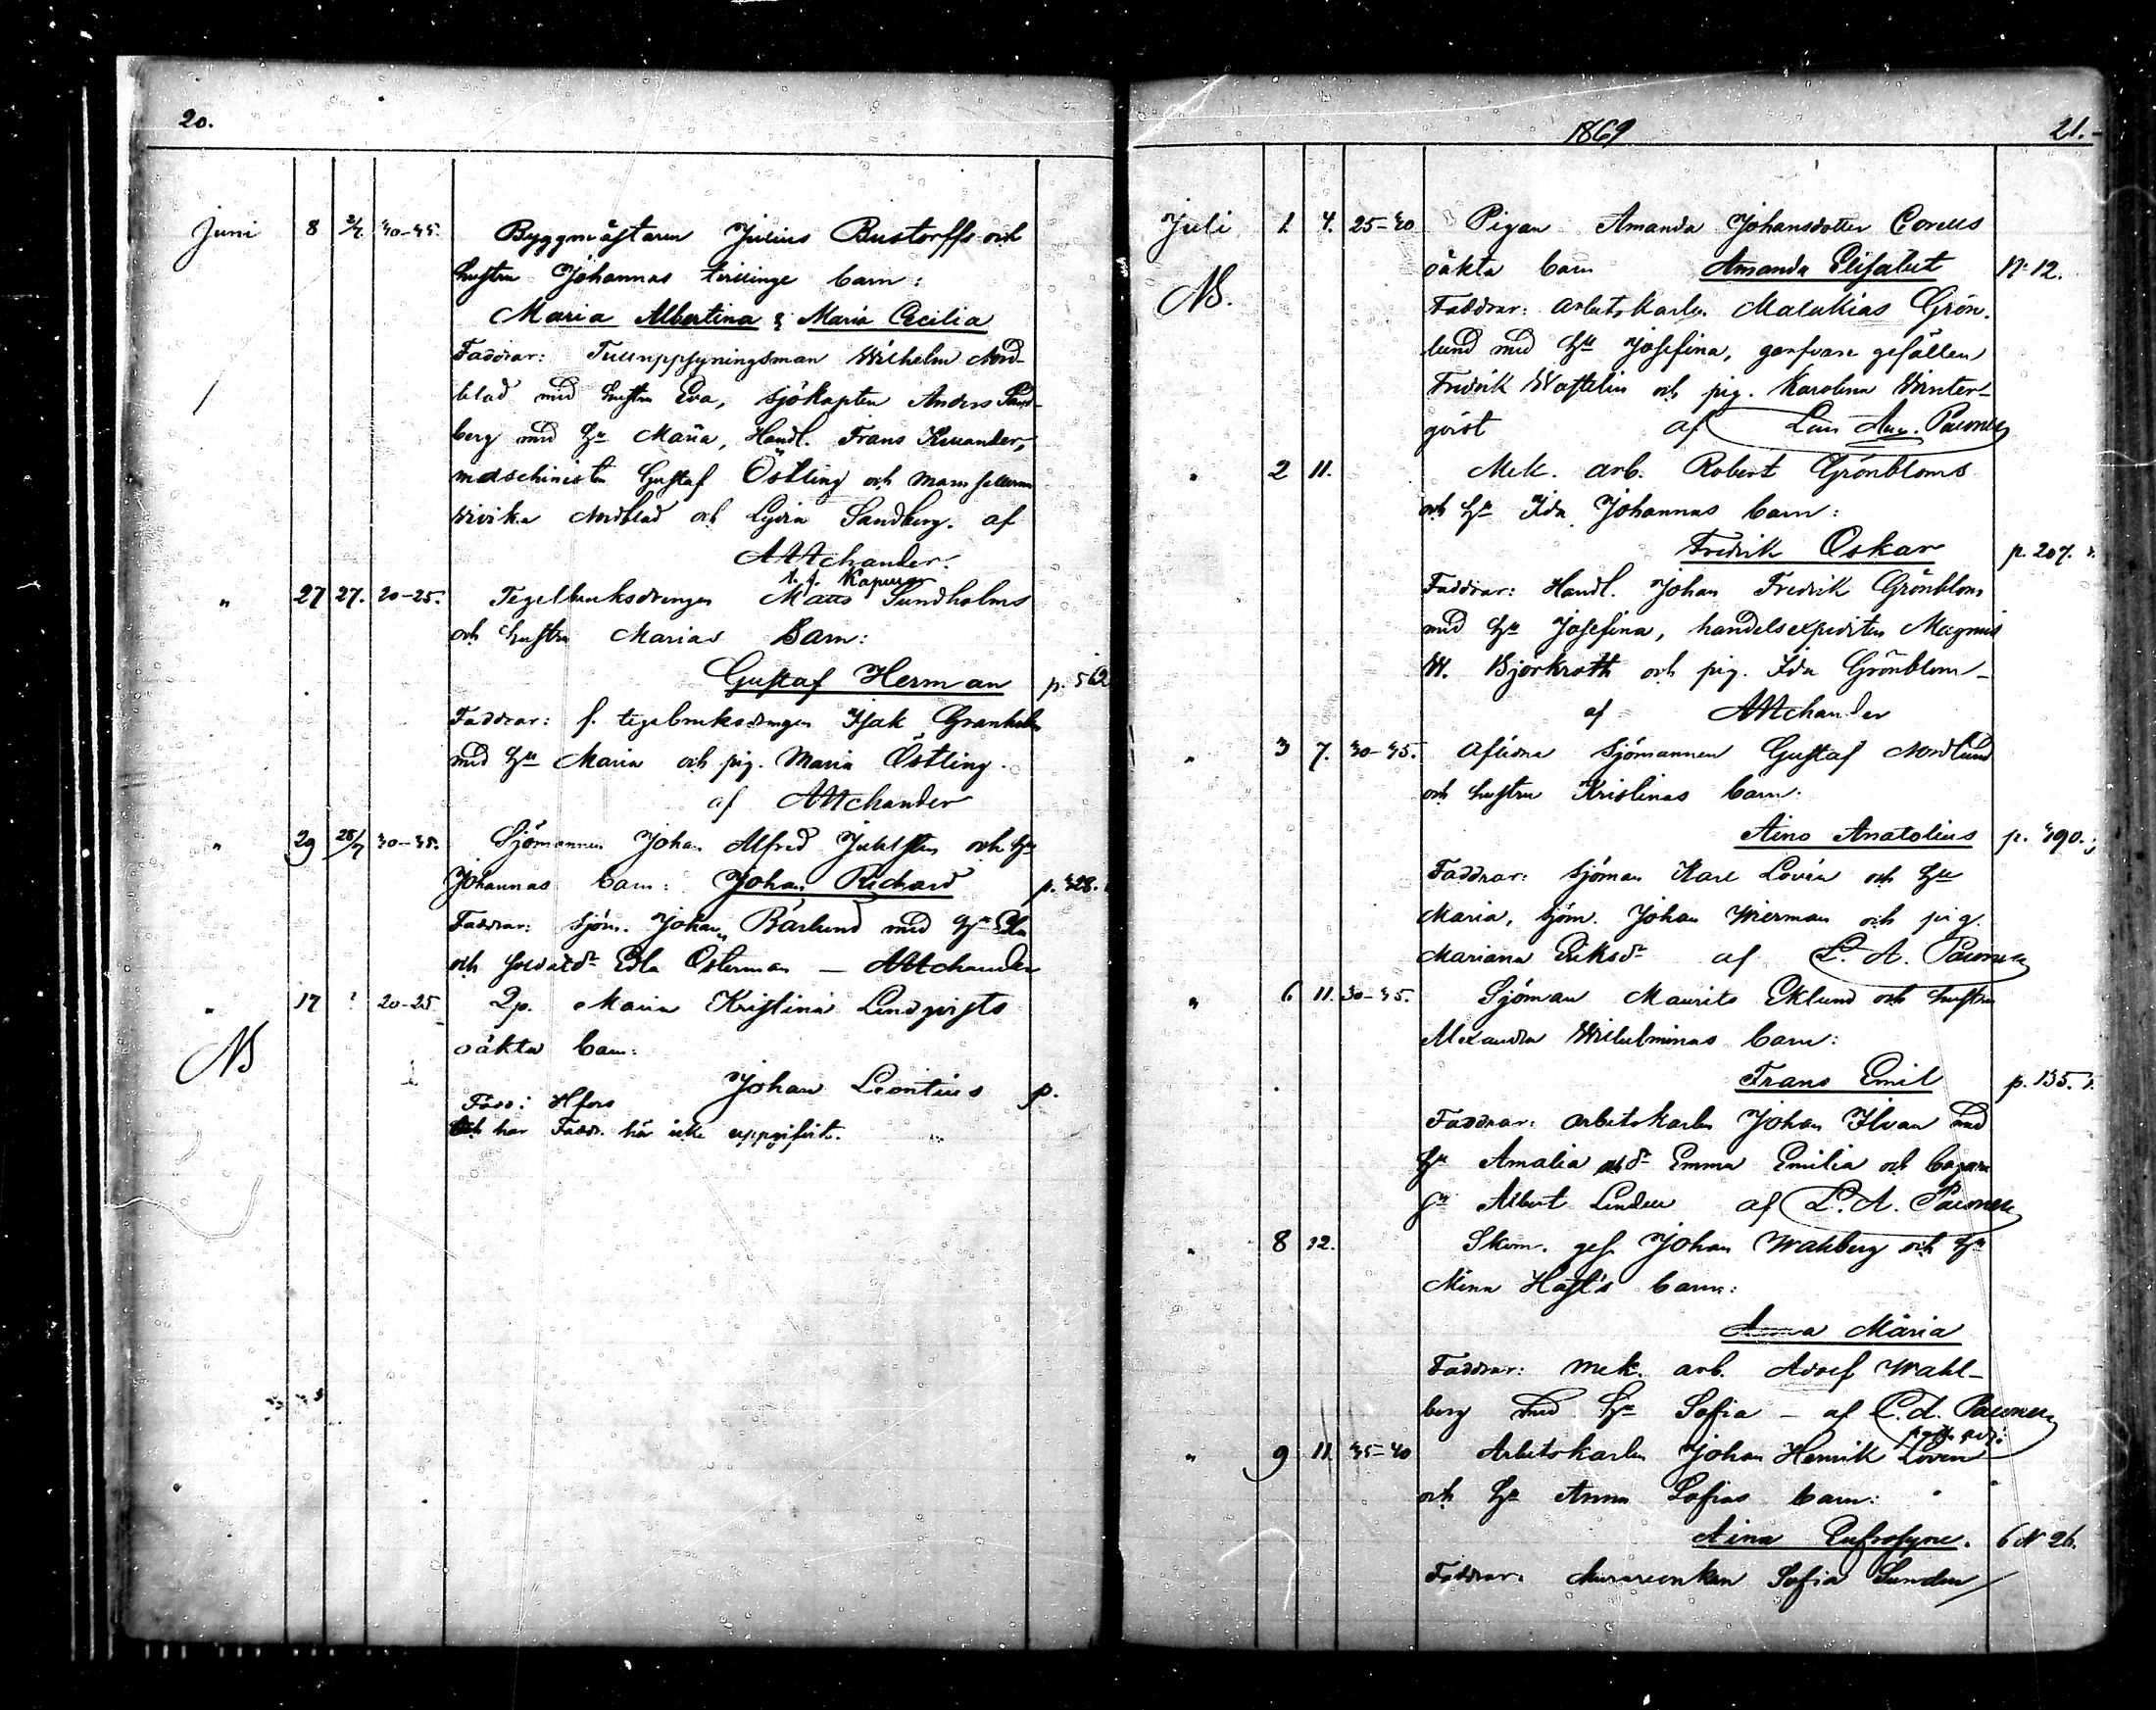 20.
Juni 8 2/7 30-35. Byggmästaren Julius Bustorffs och
hustru Johannas tvillinge barn:
Maria Albertina & Maria Cecilia
Faddrar: Tulluppsyningsman Wilhelm Nord-
blad med hustru Eva, sjökapten Anders Sand-
berg med hu Maria, Handl. Frans
maschinisten Gustaf Östling och mamsellerna
Wivika Nordblad och Lydia Sandberg. af
t. f. Kapun
" 27 27. 20-25. Tegelbruksdrengen Matts Sundholms
och hustru Marias Barn:
Gustaf Herman p. 562
Faddrar: f. tegelbruksdrengen Isak Granholm
med hu Maria och pig. Maria Östling.
af
" 29 28/7 30-35. Sjömannen Johan Alfred och hu
Johannas barn: Johan Richard p. 328.
Faddrar: sjöm. Johan Bärlund med hu Edla
och Edla Österman —
" 17 ? 20-25 Qp. Maria Kristina Lindqvists
NB oäkta barn:
Johan Leontius p.
Född i Hfors
och har Faddr. här icke uppgifvit.
1869 21.
Juli 1. 4. 25-30 Pigan Amanda Johansdotter Corells
NB. oäkta barn Amanda Elisabet N: 12.
Faddrar: arbetskarlen Malakias Grön-
lund med hu Josefina, garfvare gesällen
Fredrik Wastelin och pig. Karolina Winter-
qvist af Lars Aug. Pacioner
" 2 11. Mek. arb. Robert Grönbloms
och hu Ida Johannas barn:
Fredrik Oskar p. 207.
Faddrar: Handl. Johan Fredrik Grönblom
med hu Josefina, handelsexpediten Magnus
W. Björkroth och pig. Ida Grönblom -
af
" 3 7. 30-35. Aflidna Sjömannen Gustaf Nordlund
och hustru Kristinas barn.
Aino Anatolius p. 390.
Faddrar: sjöman Karl Lovén och hu
Maria, sjöm. Johan Wierman och pig.
Mariana Eriksdr af L. A. Pacioner
" 6 11. 30-35. Sjöman Maurits Eklund och hustru
Alexandra Wilhelminas barn:
Frans Emil p. 135.
Faddrar: arbetskarlen Johan Ilvan med
hu Amalia och dr Emma Emilia och bagare
gn Albert Linden af L. A. Pacioner
" 8 12. Skom. ges. Johan Wahlberg och hu
Mina Häst's barn:
Anna Maria
Faddrar: Mek. arb. Adolf Wahl-
berg med hu Sofia - af L. A. Pacioner
" 9 11. 35-40 Arbetskarlen Johan Henrik Lovén
och hu Anna Sofias barn:
Aina Eufrosyne. 6 N 26.
Faddrar: Murareenkan Sofia Sunden